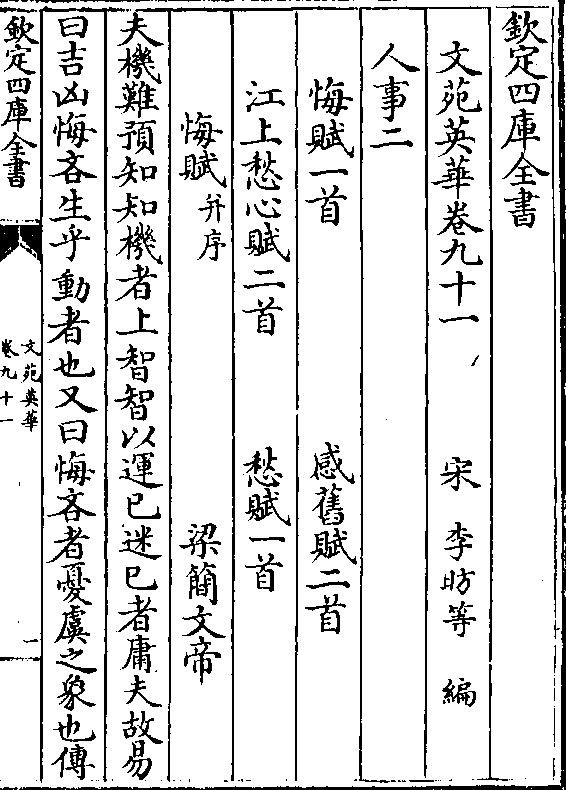 欽定四庫全書
文苑英華卷九十一 宋 李昉等 編
人事二
悔賦一首 感舊賦二首
江上愁心賦二首 愁賦一首
悔賦 并序 梁簡文帝
夫機難預知知機者上智智以運已迷已者庸夫故易
曰吉凶悔吝生乎動者也又曰悔吝者憂虞之象也傳
欽定四庫全書
文苑英華
卷九十一
一